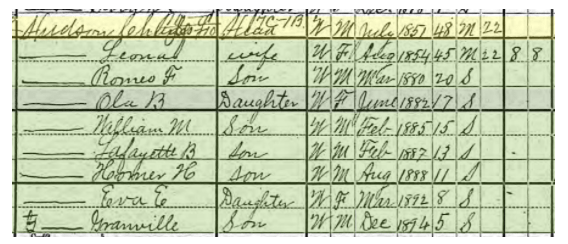 Hudson Head W M July 1851 48 M 22
Leona wife W F Aug 1854 45 M 22 8 8
Romeo F Son W M Mar 1880 20 S
Ola B Daughter W F June 1882 17 S
William M Son W M Feb 1885 15 S
Lafayette B Son W M Feb 1887 13 S
Homer H Son W M Aug 1888 11 S
Eva E Daughter W F Mar 1892 8 S
Granville Son W M Dec 1894 5 S